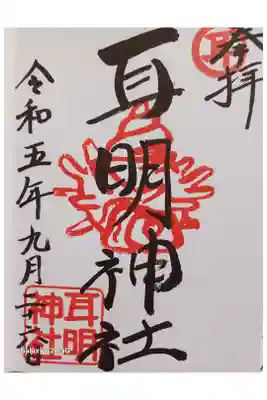 奉拝
耳明神社
令和五年九月二六日
耳明
神社